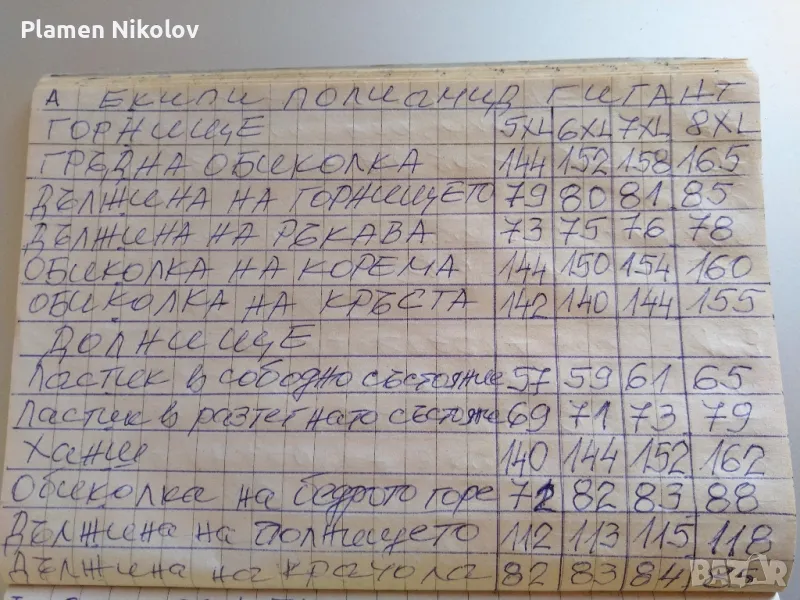 Plamen Nikolov
А ЕКИПИ ПОЛИАМИД ГИГАНТ
ГОРНИЩЕ 5XL 6XL 7XL 8XL
ГРЪДНА ОБИКОЛКА 144 152 158 165
ДЪЛЖИНА НА ГОРНИЩЕТО 79 80 81 85
ДЪЛЖИНА НА РЪКАВА 73 75 76 78
ОБИКОЛКА НА КОРЕМА 144 150 154 160
ОБИКОЛКА НА КРЪСТА 142 140 144 155
ДОЛНИЩЕ
Ластик в свободно състояние 57 59 61 65
Ластик в разтегнато състояние 69 71 73 79
Ханш 140 144 152 162
Обиколка на бедрото горе 72 82 83 88
Дължина на Долнището 112 113 115 118
Дължина на крачола 82 83 84
BAZAR